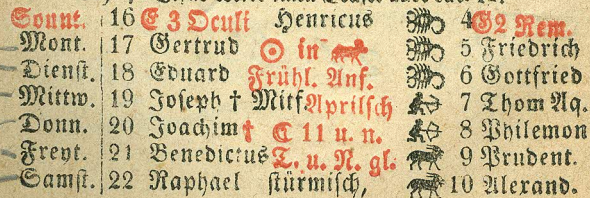 Sonnt. 16 E 3 Oculi Henricus 4 G2 Rem.
Mont. 17 Gertrud ☉ in 5 Friedrich
Dienst. 18 Eduard Frühl. Anf. 6 Gottfried
Mittw. 19 Joseph † Mitf. Aprilsch 7 Thom Aq.
Donn. 20 Joachim † ☾ 11 u. n. 8 Philemon
Freyt. 21 Benedictus T. u. N. gl. 9 Prudent.
Samst. 22 Raphael stürmisch, 10 Alexand.